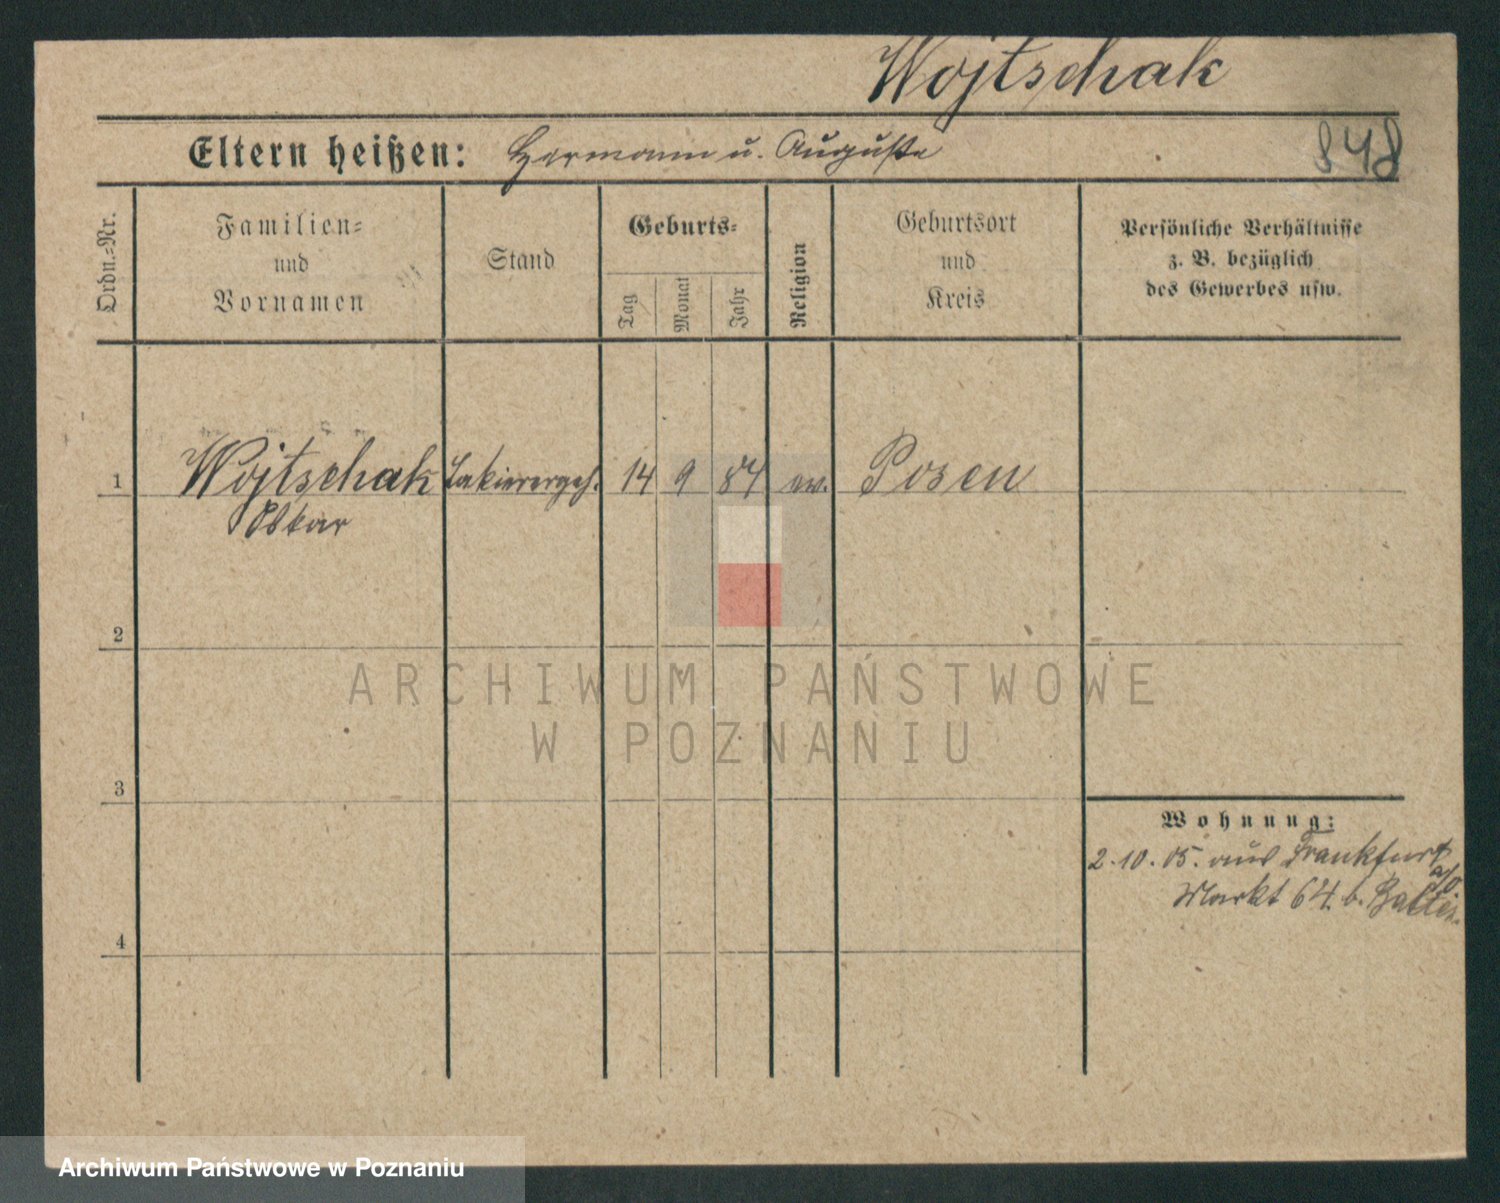 Wojtschak
Eltern heißen: Hermann u. Auguste
848
Ordn.-Nr.
Familien-
und
Vornamen
Stand
Geburts-
Tag
Monat
Jahr
Religion
Geburtsort
und
Kreis
Persönliche Verhältnisse
z. B. bezüglich
des Gewerbes usw.
1 Wojtschak Lakierergeh. 14 9 84 ev. Posen
Oskar
2
3
4
Wohnung:
2.10.05. aus Frankfurt
a/O.
Markt 64. b.
ARCHIWUM PAŃSTWOWE
W POZNANIU
Archiwum Państwowe w Poznaniu